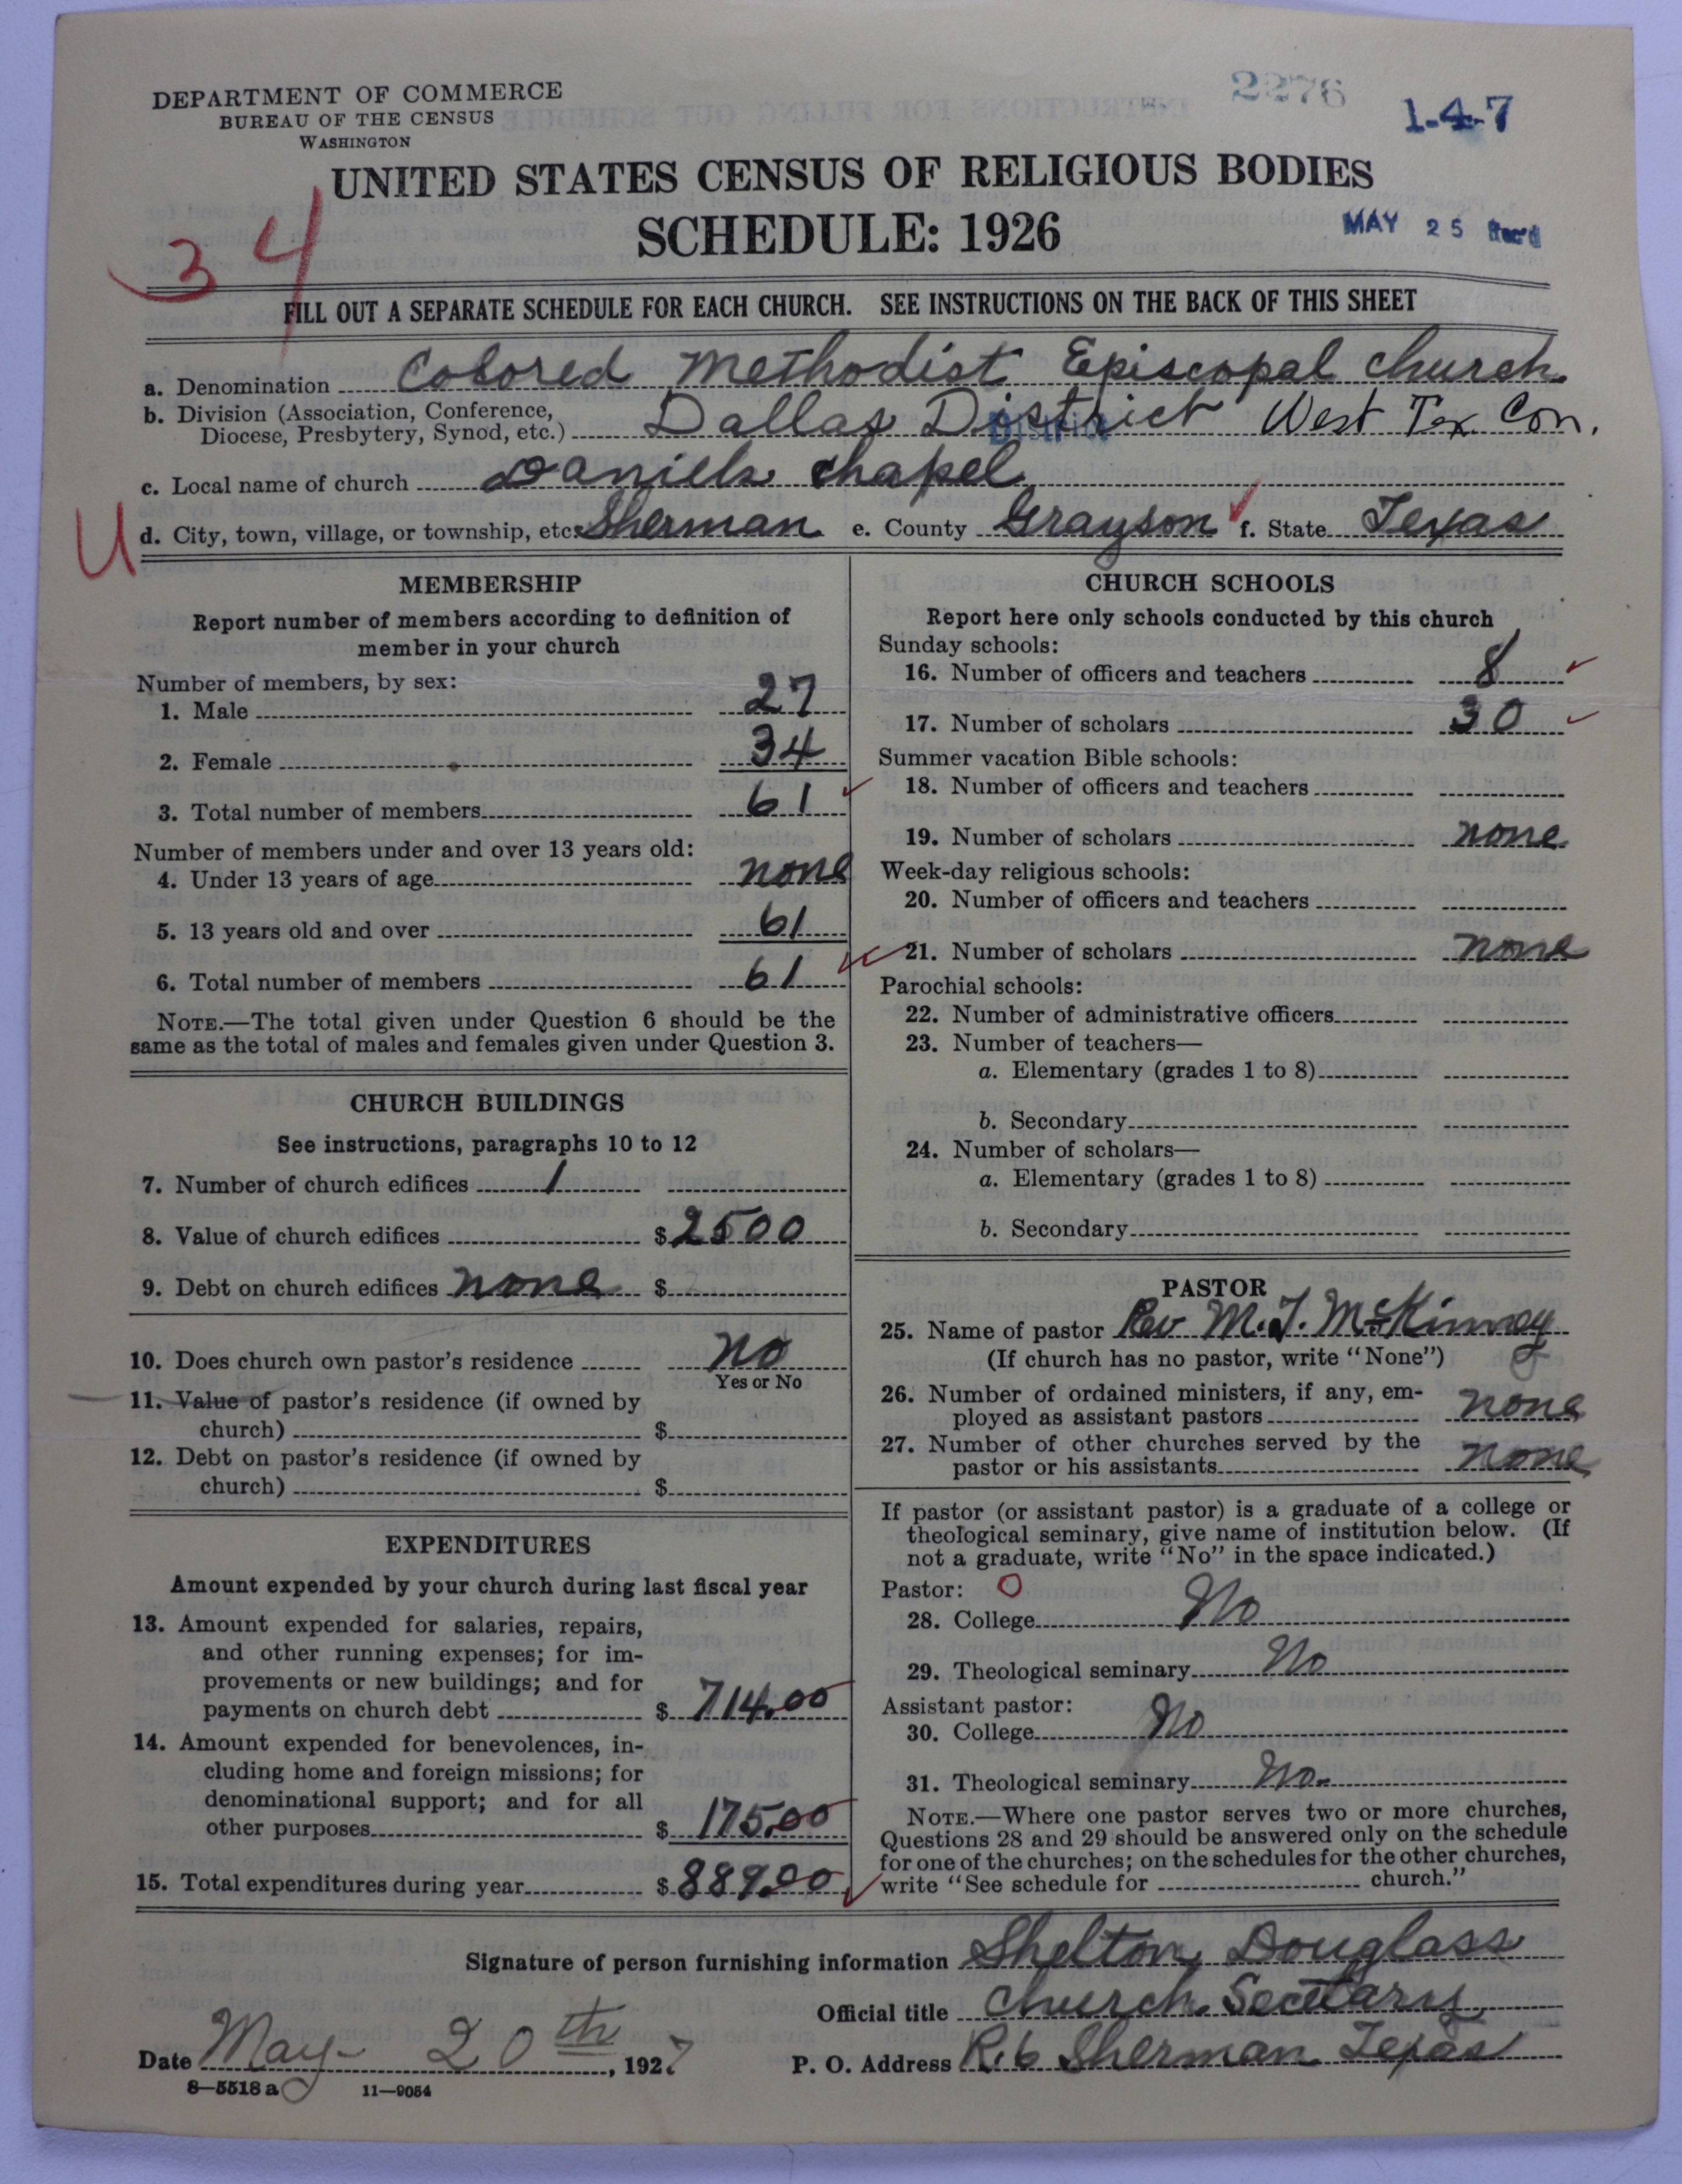 DEPARTMENT OF COMMERCE
BUREAU OF THE CENSUS
WASHINGTON
2276
1-4-7
UNITED STATES CENSUS OF RELIGIOUS BODIES
SCHEDULE: 1926
MAY 25 Rec'd
34
FILL OUT A SEPARATE SCHEDULE FOR EACH CHURCH. SEE INSTRUCTIONS ON THE BACK OF THIS SHEET
a. Denomination Colored Methodist Episcopal church
b. Division (Association, Conference,
Diocese, Presbytery, Synod, etc.) Dallas District West Tex Con.
District
c. Local name of church Daniels chapel
U d. City, town, village, or township, etc. Sherman e. County Grayson f. State Texas
MEMBERSHIP
Report number of members according to definition of
member in your church
Number of members, by sex:
1. Male 27
2. Female 34
3. Total number of members 61
Number of members under and over 13 years old:
4. Under 13 years of age none
5. 13 years old and over 61
6. Total number of members 61
NOTE.—The total given under Question 6 should be the
same as the total of males and females given under Question 3.
CHURCH BUILDINGS
See instructions, paragraphs 10 to 12
7. Number of church edifices 1
8. Value of church edifices $2500
9. Debt on church edifices none $
10. Does church own pastor's residence no
Yes or No
11. Value of pastor's residence (if owned by
church) $
12. Debt on pastor's residence (if owned by
church) $
EXPENDITURES
Amount expended by your church during last fiscal year
13. Amount expended for salaries, repairs,
and other running expenses; for im-
provements or new buildings; and for
payments on church debt $ 714.00
14. Amount expended for benevolences, in-
cluding home and foreign missions; for
denominational support; and for all
other purposes $ 175.00
15. Total expenditures during year $ 889.00
CHURCH SCHOOLS
Report here only schools conducted by this church
Sunday schools:
16. Number of officers and teachers 8
17. Number of scholars 30
Summer vacation Bible schools:
18. Number of officers and teachers
19. Number of scholars none
Week-day religious schools:
20. Number of officers and teachers
21. Number of scholars none
Parochial schools:
22. Number of administrative officers
23. Number of teachers—
a. Elementary (grades 1 to 8)
b. Secondary
24. Number of scholars—
a. Elementary (grades 1 to 8)
b. Secondary
PASTOR
25. Name of pastor Rev M. J. McKinney
(If church has no pastor, write "None")
26. Number of ordained ministers, if any, em-
ployed as assistant pastors none
27. Number of other churches served by the
pastor or his assistants none
If pastor (or assistant pastor) is a graduate of a college or
theological seminary, give name of institution below. (If
not a graduate, write "No" in the space indicated.)
Pastor: O
28. College No
29. Theological seminary No
Assistant pastor:
30. College No
31. Theological seminary No.
NOTE.—Where one pastor serves two or more churches,
Questions 28 and 29 should be answered only on the schedule
for one of the churches; on the schedules for the other churches,
write "See schedule for church."
Signature of person furnishing information Shelton Douglass
Official title Church Secetary
Date May 20th, 1927
P. O. Address R. 6 Sherman Texas
8—5518 a 11—9054